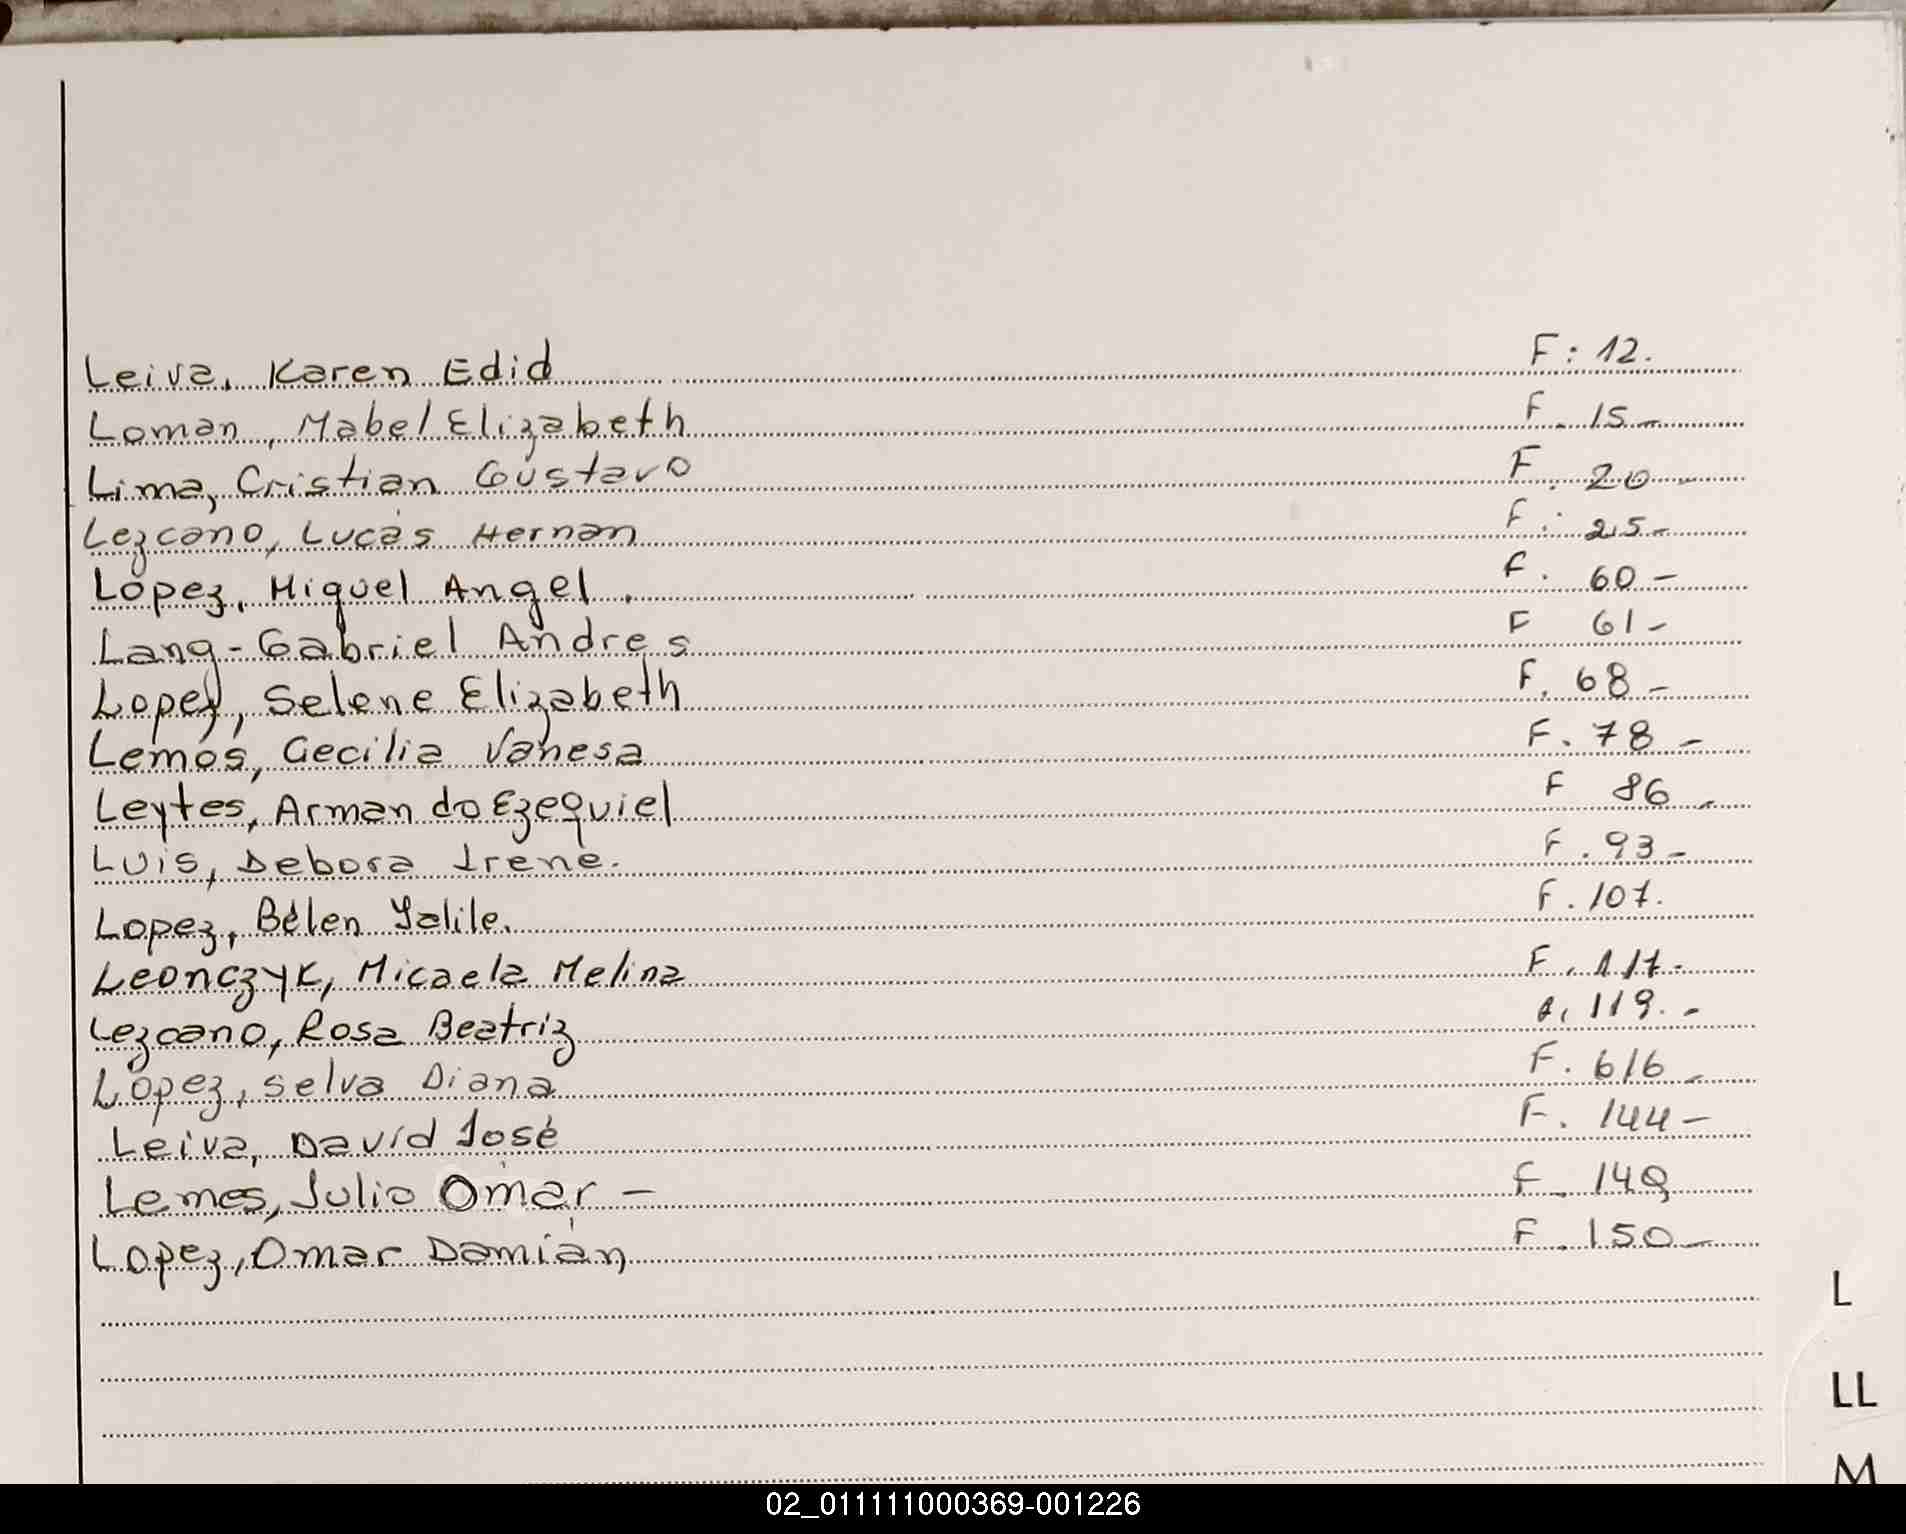 Leiva, Karen Edid F: 12.
Loman, Mabel Elizabeth F. 15-
Lima, Cristian Gustavo F. 20-
Lezcano, Lucas Hernan F. 25-
López, Miguel Angel. F. 60-
Lang-Gabriel Andres F 61-
Lopez, Selene Elizabeth F. 68-
Lemos, Cecilia Vanesa F. 78-
Leytes, Armando Ezequiel F 86-
Luis, Debora Irene. F. 93-
Lopez, Bélen Yalile. F. 107.
Leonczyk, Micaela Melina F. 117.
Lezcano, Rosa Beatriz 119.-
López, Selva Diana F. 616-
Leiva, David José F. 144-
Lemes, Julio Omar - F. 149
Lopez, Omar Damián F. 150-
L
LL
M
02_011111000369-001226